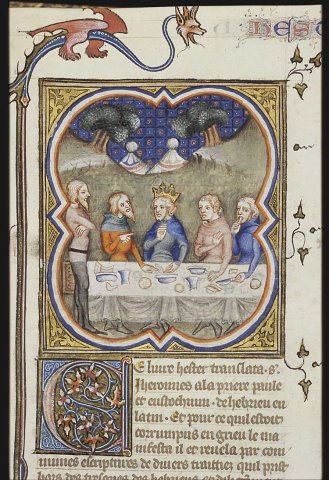 hest
e liure hester translata .s.
Iheronimes a la priere paule
et eustochium . de hebrieu en
latin . Et pour ce quil estoit
corrumpus en grieu le ma
nifesta il et reuela par com
munes escriptures de diuers